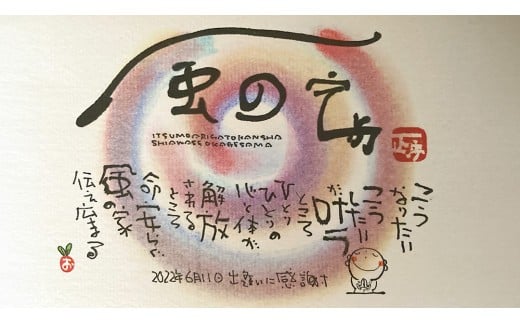 風の家
ITSUMOARIGATOKANSHA
SHIAWASEOKAGESAMA
こう
なりたい
こう
したい
が叶う
ところ
ひとり
ひとりの
心と体が
解放
される
ところ
命安らぐ
風の家
伝え広まる
お
2022年6月11日 出逢いに感謝す